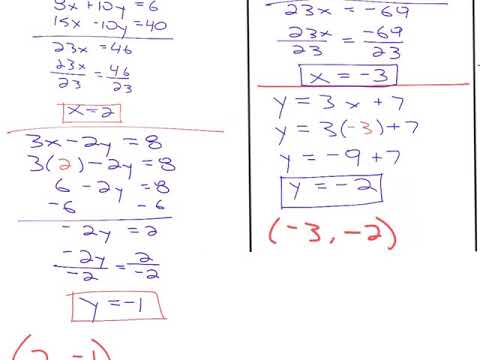 8x + 10y = 6
15x - 10y = 40
23x = 46
23x/23 = 46/23
x = 2
3x - 2y = 8
3(2) - 2y = 8
6 - 2y = 8
-6 -6
-2y = 2
-2y/-2 = 2/-2
y = -1
(2, -1)
23x = -69
23x/23 = -69/23
x = -3
y = 3x + 7
y = 3(-3) + 7
y = -9 + 7
y = -2
(-3, -2)